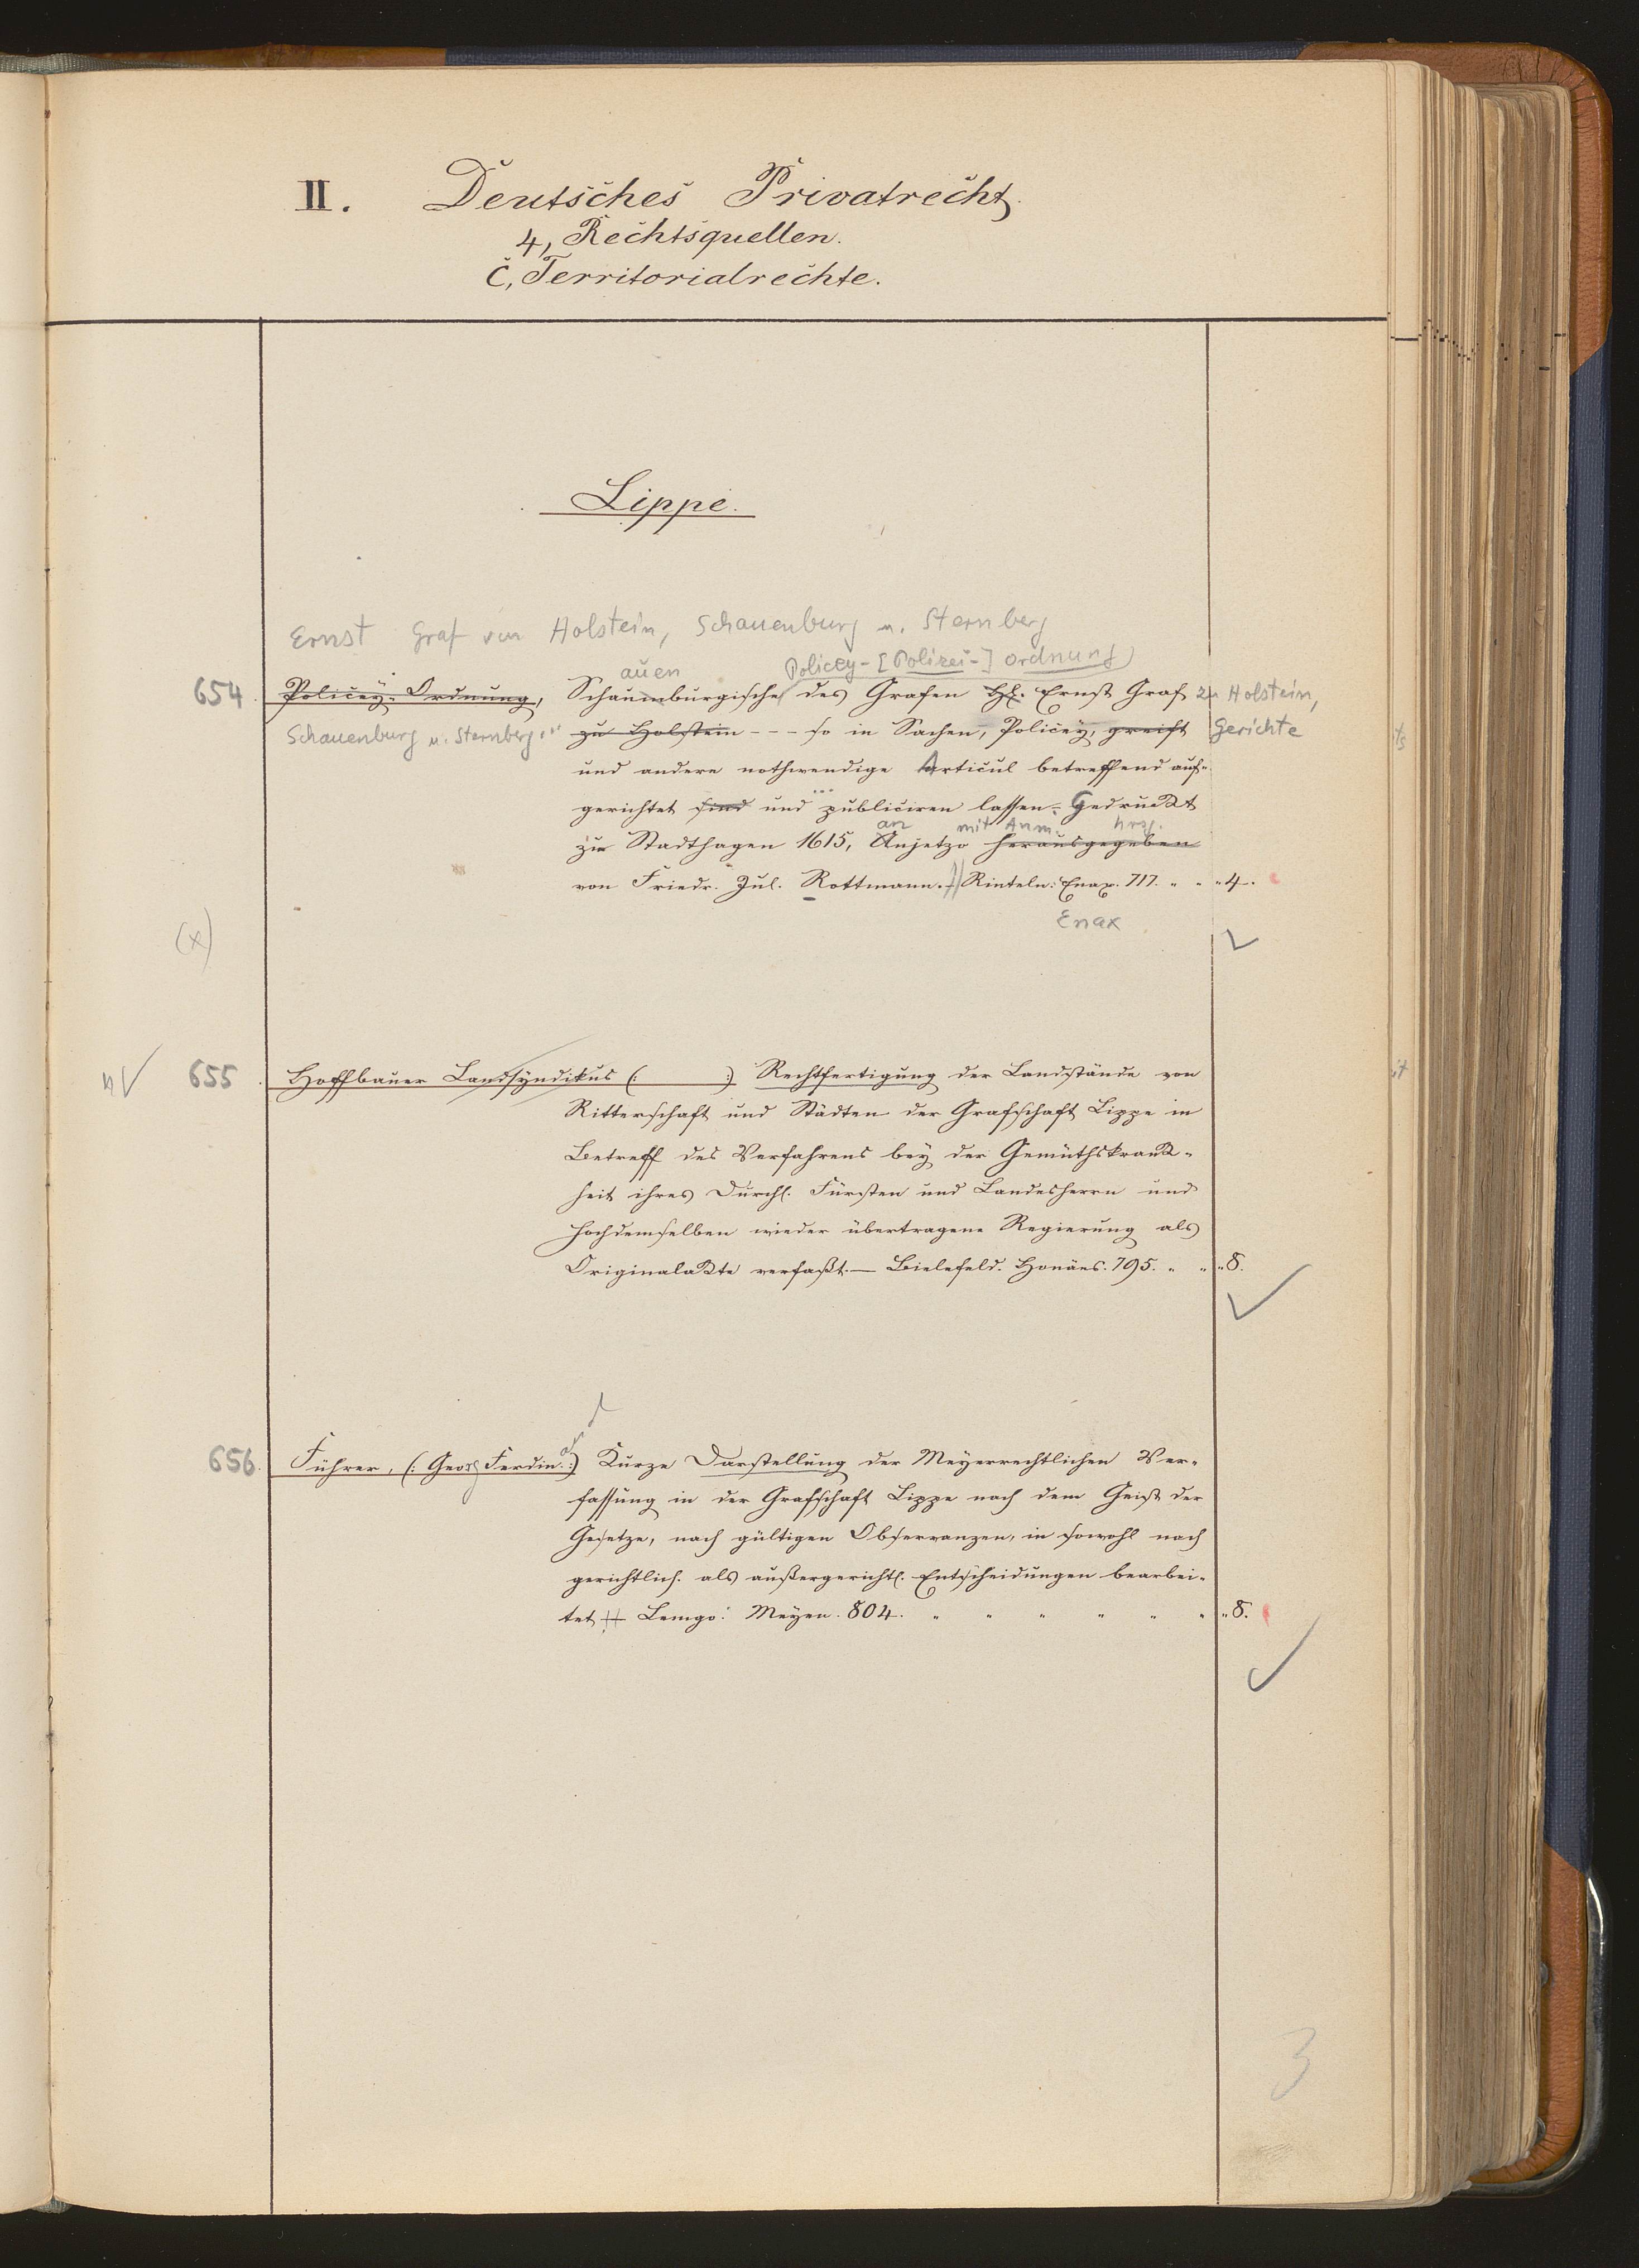 II. Deutsches Privatrecht.
4, Rechtsquellen.
C, Territorialrechte.
Lippe.
Ernst Graf von Holstein, Schauenburg u. Sternberg
auen Policey-[Polizei-] ordnung
654. Policey-Ordnung, Schaumburgische des Grafen H. Ernst Graf zu Holstein,
Schauenburg u. Sternberg... zu Holstein --- so in Sachen, Policey, greift Gerichte
und andere nothwendige Articul betreffend auf-
gerichtet sind und ... publiciren lassen. Gedruckt
an mit Anm. hrsg.
zu Stadthagen 1615, Anjetzo herausgegeben
von Friedr. Jul. Rottmann. Rinteln: Enax. 717. " " "4.
Enax
(x)
n 655. Hoffbauer Landsyndikus (: :) Rechtfertigung der Landstände von
Ritterschaft und Städten der Grafschaft Lippe in
Betreff des Verfahrens bey der Gemüthskrank-
heit ihres Durchl. Fürsten und Landesherrn und
hochdemselben wieder übertragene Regierung als
Originalakte verfaßt.— Bielefeld. Honäus. 795. " " "8.
656. Führer, (: Georg Ferdin. :) Kurze Darstellung der Meyerrechtlichen Ver-
fassung in der Grafschaft Lippe nach dem Geist der
Gesetze, nach gültigen Observanzen, in sowohl nach
gerichtlich. als außergerichtl. Entscheidungen bearbei-
tet Lemgo: Meyen. 804. " " " " " " "8.
3